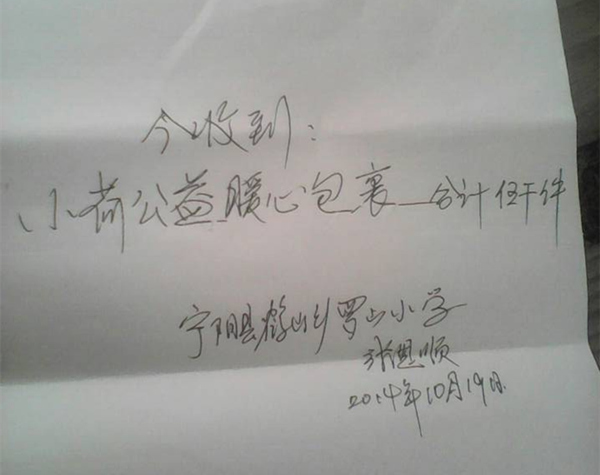 今收到：
小荷公益暖心包裹 合计伍千件
宁阳县鹤山乡罗山小学
张思顺
2014年10月19日